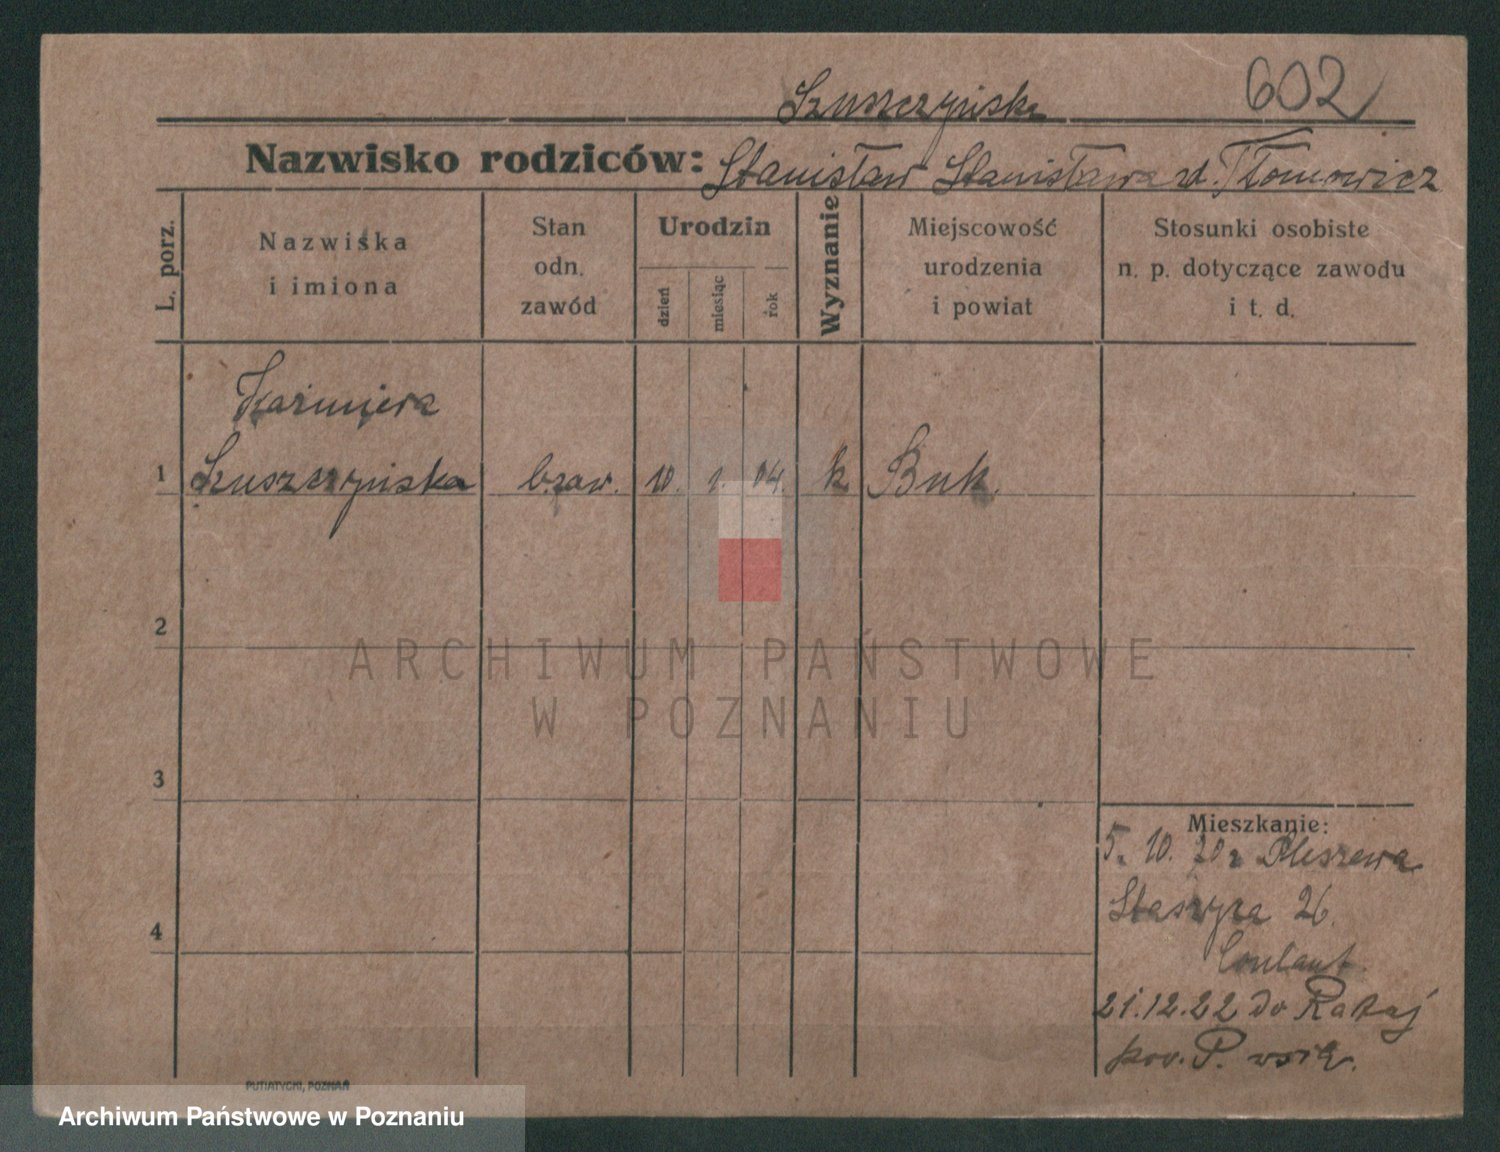 602
Szuszczyńska
Nazwisko rodziców: Stanisław Stanisława zd. Tłomowicz
L. porz.
Nazwiska
i imiona
Stan
odn.
zawód
Urodzin
dzień
miesiąc
rok
Wyznanie
Miejscowość
urodzenia
i powiat
Stosunki osobiste
n. p. dotyczące zawodu
i t. d.
Kazimiera
1 Szuszczyńska b. zaw. 10. 1 04 k Buk.
2
ARCHIWUM PAŃSTWOWE
W POZNANIU
3
Mieszkanie:
5. 10. 20 z Pleszewa
Staszyca 26.
4
21.12.22 do Rataj
pow. P. wsch.
PUTIATYCKI, POZNAŃ
Archiwum Państwowe w Poznaniu